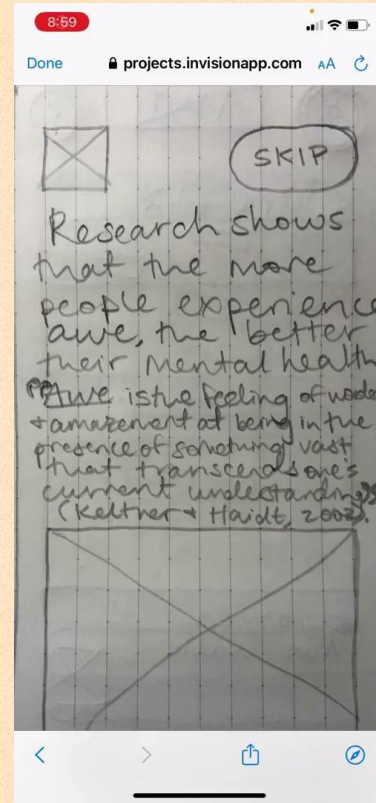 8:59
Done projects.invisionapp.com AA
SKIP
Research shows
that the more
people experience
awe, the better
their mental health
""Awe is the feeling of wonder
+ amazement at being in the
presence of something vast
that transcends one's
current understanding"
(Keltner + Haidt, 2003).